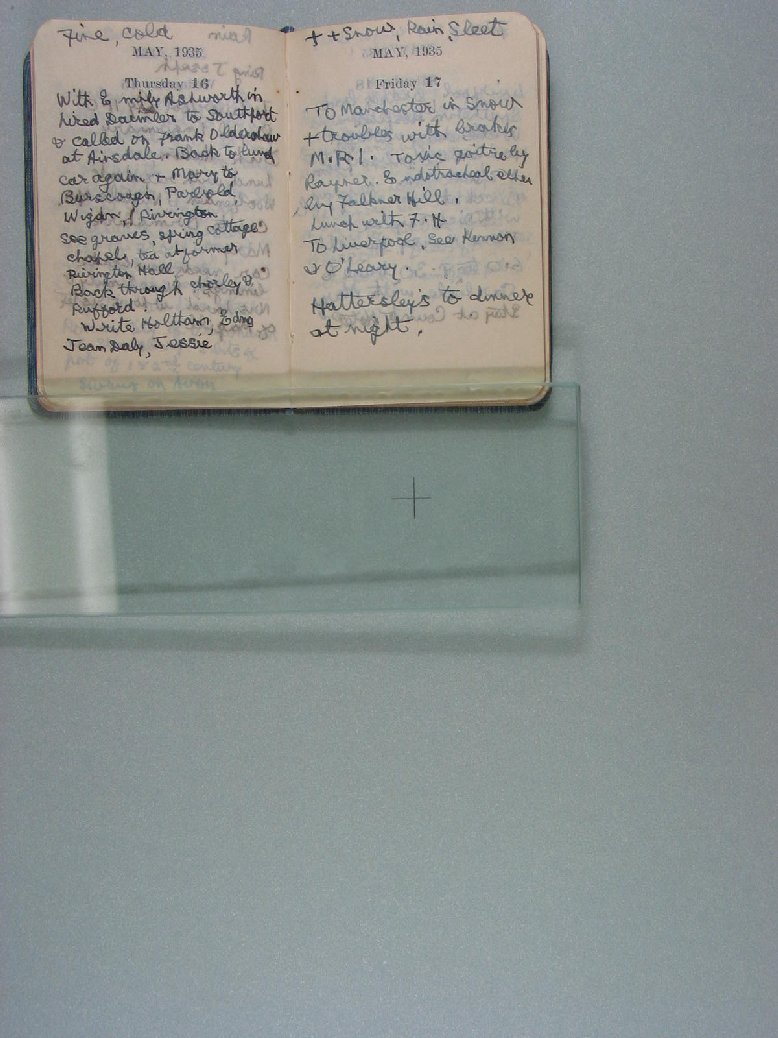 Fine, cold
MAY, 1935
Thursday 16
With Emily Ashworth in
hired Daimler to Southport
& called on Frank Olderslaw
at Ainsdale. Back to lunch
car again + Mary to
Burscough, Parbold,
Wigan, Rivington.
See graves, spring cottage
chapel, tea at former
Rivington Hall
Back through Chorley &
Rufford.
Write Holtham, Edna
Jean Daly, Jessie
+ + Snow, Rain, Sleet
MAY, 1935
Friday 17
To Manchester in Snow
+ troubles with brakes
M.R.I. Toxic goitre by
Rayner. Endotracheal ether
by Falkner Hill.
Lunch with F. H
To Liverpool. See Kennon
& O'Leary.
Hattersley's to dinner
at night.